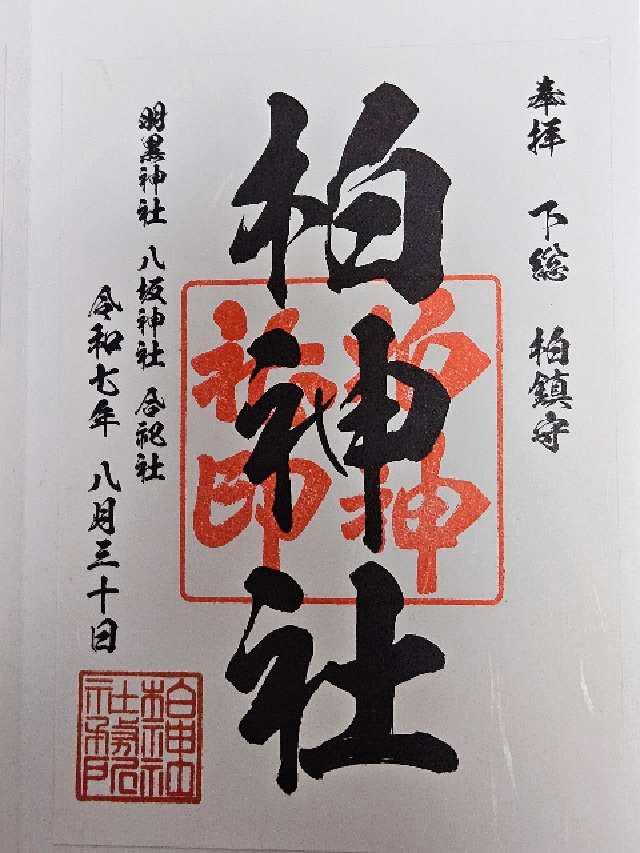 奉拝 下総 柏鎮守
柏神社
柏神
社印
羽黒神社 八坂神社 合祀社
令和七年 八月三十日
柏神社
社務所印